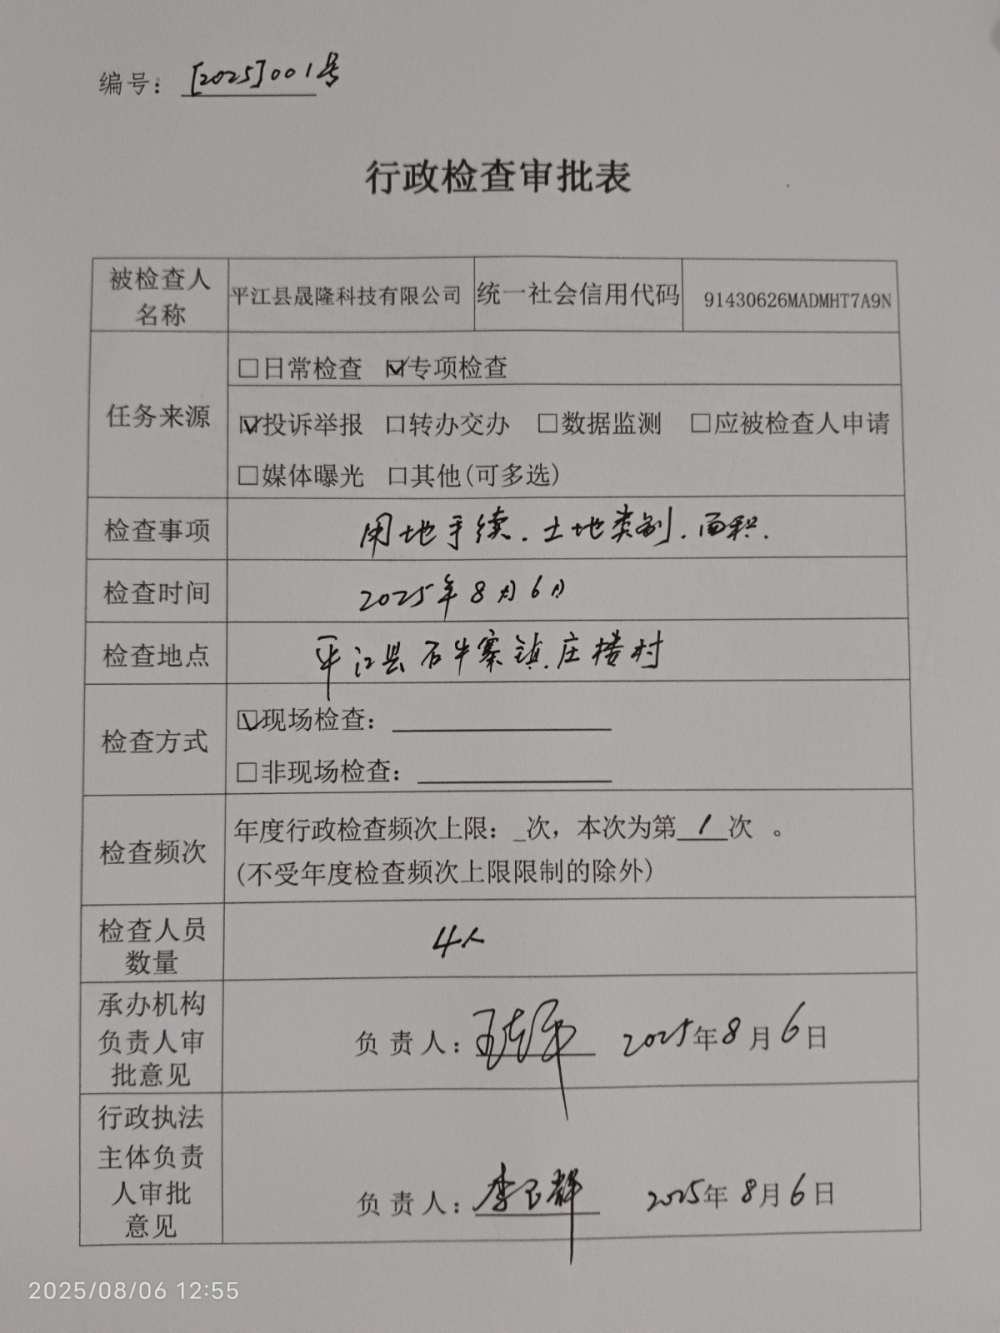 编号：[2025]001号
行政检查审批表
被检查人名称 平江县晟隆科技有限公司 统一社会信用代码 91430626MADMHT7A9N
任务来源
□日常检查 ☑专项检查
☑投诉举报 □转办交办 □数据监测 □应被检查人申请
□媒体曝光 □其他(可多选)
检查事项 用地手续、土地类别、面积.
检查时间 2025年8月6日
检查地点 平江县石牛寨镇庄楼村
检查方式
☑现场检查：
□非现场检查：
检查频次
年度行政检查频次上限：_次，本次为第1次 。
(不受年度检查频次上限限制的除外)
检查人员数量 4人
承办机构负责人审批意见
负责人： 2025年8月6日
行政执法主体负责人审批意见
负责人：李 2025年8月6日
2025/08/06 12:55